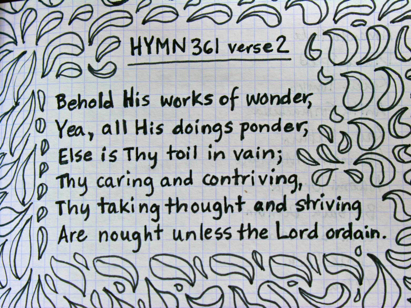 HYMN 361 verse 2
Behold His works of wonder,
Yea, all His doings ponder,
Else is Thy toil in vain;
Thy caring and contriving,
Thy taking thought and striving
Are nought unless the Lord ordain.